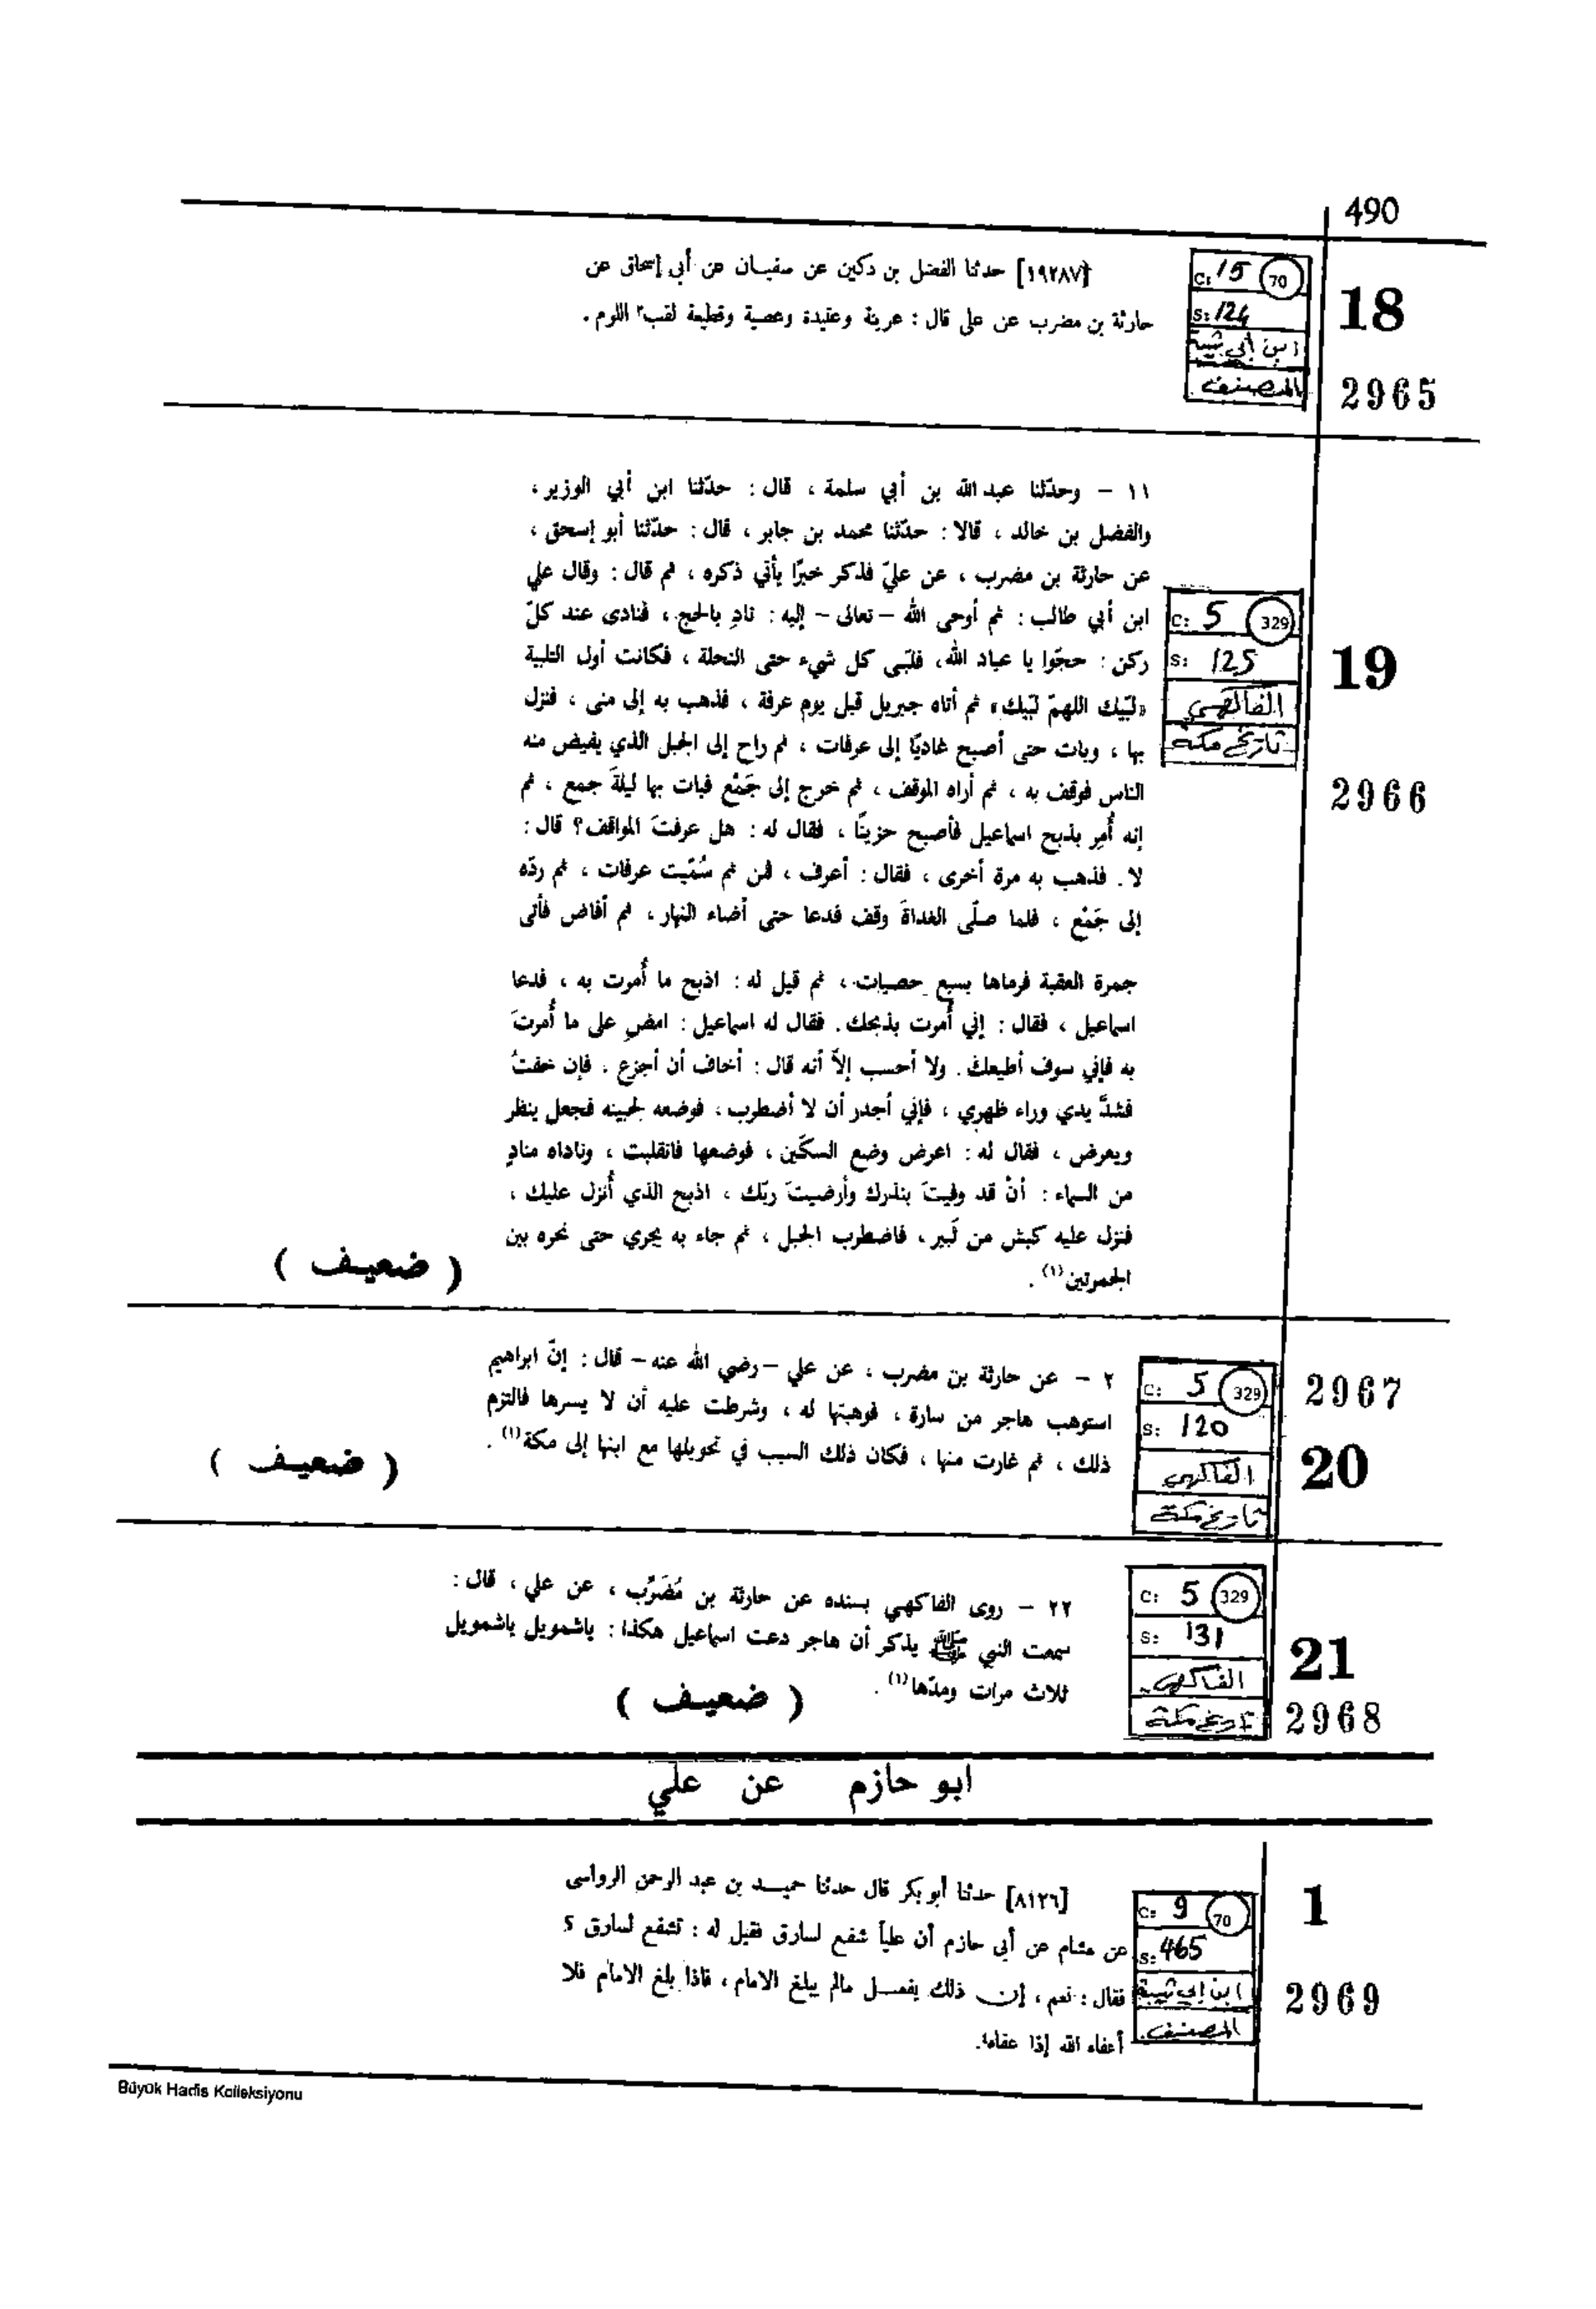 490
[١٩٢٨٧] حدثنا الفضل بن دكين عن سفيان عن أبي إسحاق عن
حارثة بن مضرب عن على قال : عرينة وعقيدة وعصية وقطيعة اللوم .
C: 15 70
S: 124
ابن أبي شيبة
المصنف
18
2965
١١ – وحدّثنا عبد الله بن أبي سلمة ، قال : حدّثنا ابن أبي الوزير ،
والفضل بن خالد ، قالا : حدّثنا محمد بن جابر ، قال : حدّثنا أبو إسحق ،
عن حارثة بن مضرب ، عن عليّ فذكر خبرًا يأتي ذكره ، ثم قال : وقال علي
ابن أبي طالب : ثم أوحى الله – تعالى – إليه : نادِ بالحج ، فنادى عند كلّ
ركن : حجّوا يا عباد الله، فلبّى كل شيء حتى النحلة ، فكانت أول التلبية
«لبّيك اللهمّ لبّيك» ثم أتاه جبريل قبل يوم عرفة ، فذهب به إلى منى ، فنزل
بها ، وبات حتى أصبح غاديًا إلى عرفات ، ثم راح إلى الجبل الذي يفيض منه
الناس فوقف به ، ثم أراه الموقف ، ثم خرج إلى جَمْع فبات بها ليلةَ جمع ، ثم
إنه أُمِر بذبح اسماعيل فأصبح حزينًا ، فقال له : هل عرفتَ المواقف؟ قال :
لا . فذهب به مرة أخرى ، فقال : أعرف ، فمن ثم سُمّيت عرفات ، ثم ردّه
إلى جَمْع ، فلما صلّى الغداةَ وقف فدعا حتى أضاء النهار ، ثم أفاض فأتى
جمرة العقبة فرماها بسبع حصيات ، ثم قيل له : اذبح ما أُمرت به ، فدعا
اسماعيل ، فقال : إني أُمرت بذبحك . فقال له اسماعيل : امضِ على ما أُمرتَ
به فإني سوف أطيعك . ولا أحسب إلاّ أنه قال : أخاف أن أجزع ، فإن خفتَ
فشدَّ يدي وراء ظهري ، فإني أجدر أن لا أضطرب ، فوضعه لجبينه فجعل ينظر
ويعرض ، فقال له : اعرض وضع السكّين ، فوضعها فانقلبت ، وناداه منادٍ
من السماء : أنْ قد وفيتَ بنذرك وأرضيتَ ربّك ، اذبح الذي أُنزل عليك ،
فنزل عليه كبش من ثَبير ، فاضطرب الجبل ، ثم جاء به يجري حتى نحره بين
الجمرتين(١) .
( ضعيف )
C: 5 329
S: 125
الفاكهي
تاريخ مكة
19
2966
٢ – عن حارثة بن مضرب ، عن علي –رضي الله عنه– قال : إنّ ابراهيم
استوهب هاجر من سارة ، فوهبتها له ، وشرطت عليه أن لا يسرها فالتزم
ذلك ، ثم غارت منها ، فكان ذلك السبب في تحويلها مع ابنها إلى مكة(١) .
( ضعيف )
C: 5 329
S: 120
الفاكهي
تاريخ مكة
2967
20
٢٢ – روى الفاكهي بسنده عن حارثة بن مُضَرِّب ، عن علي ، قال :
سمعت النبي ﷺ يذكر أن هاجر دعت اسماعيل هكذا : ياشمويل ياشمويل
ثلاث مرات ومدّها(١) .
( ضعيف )
C: 5 329
S: 131
الفاكهي
تاريخ مكة
21
2968
ابو حازم عن علي
[٨١٢٦] حدثنا أبو بكر قال حدثنا حميد بن عبد الرحمن الرواسى
عن هشام عن أبي حازم أن علياً شفع لسارق فقيل له : تشفع لسارق ؟
فقال : نعم ، إن ذلك يفعل مالم يبلغ الامام ، فاذا بلغ الامام فلا
أعفاه الله إذا عفاه.
C: 9 70
S: 465
ابن ابي شيبة
المصنف
1
2969
Büyük Hadis Kolleksiyonu